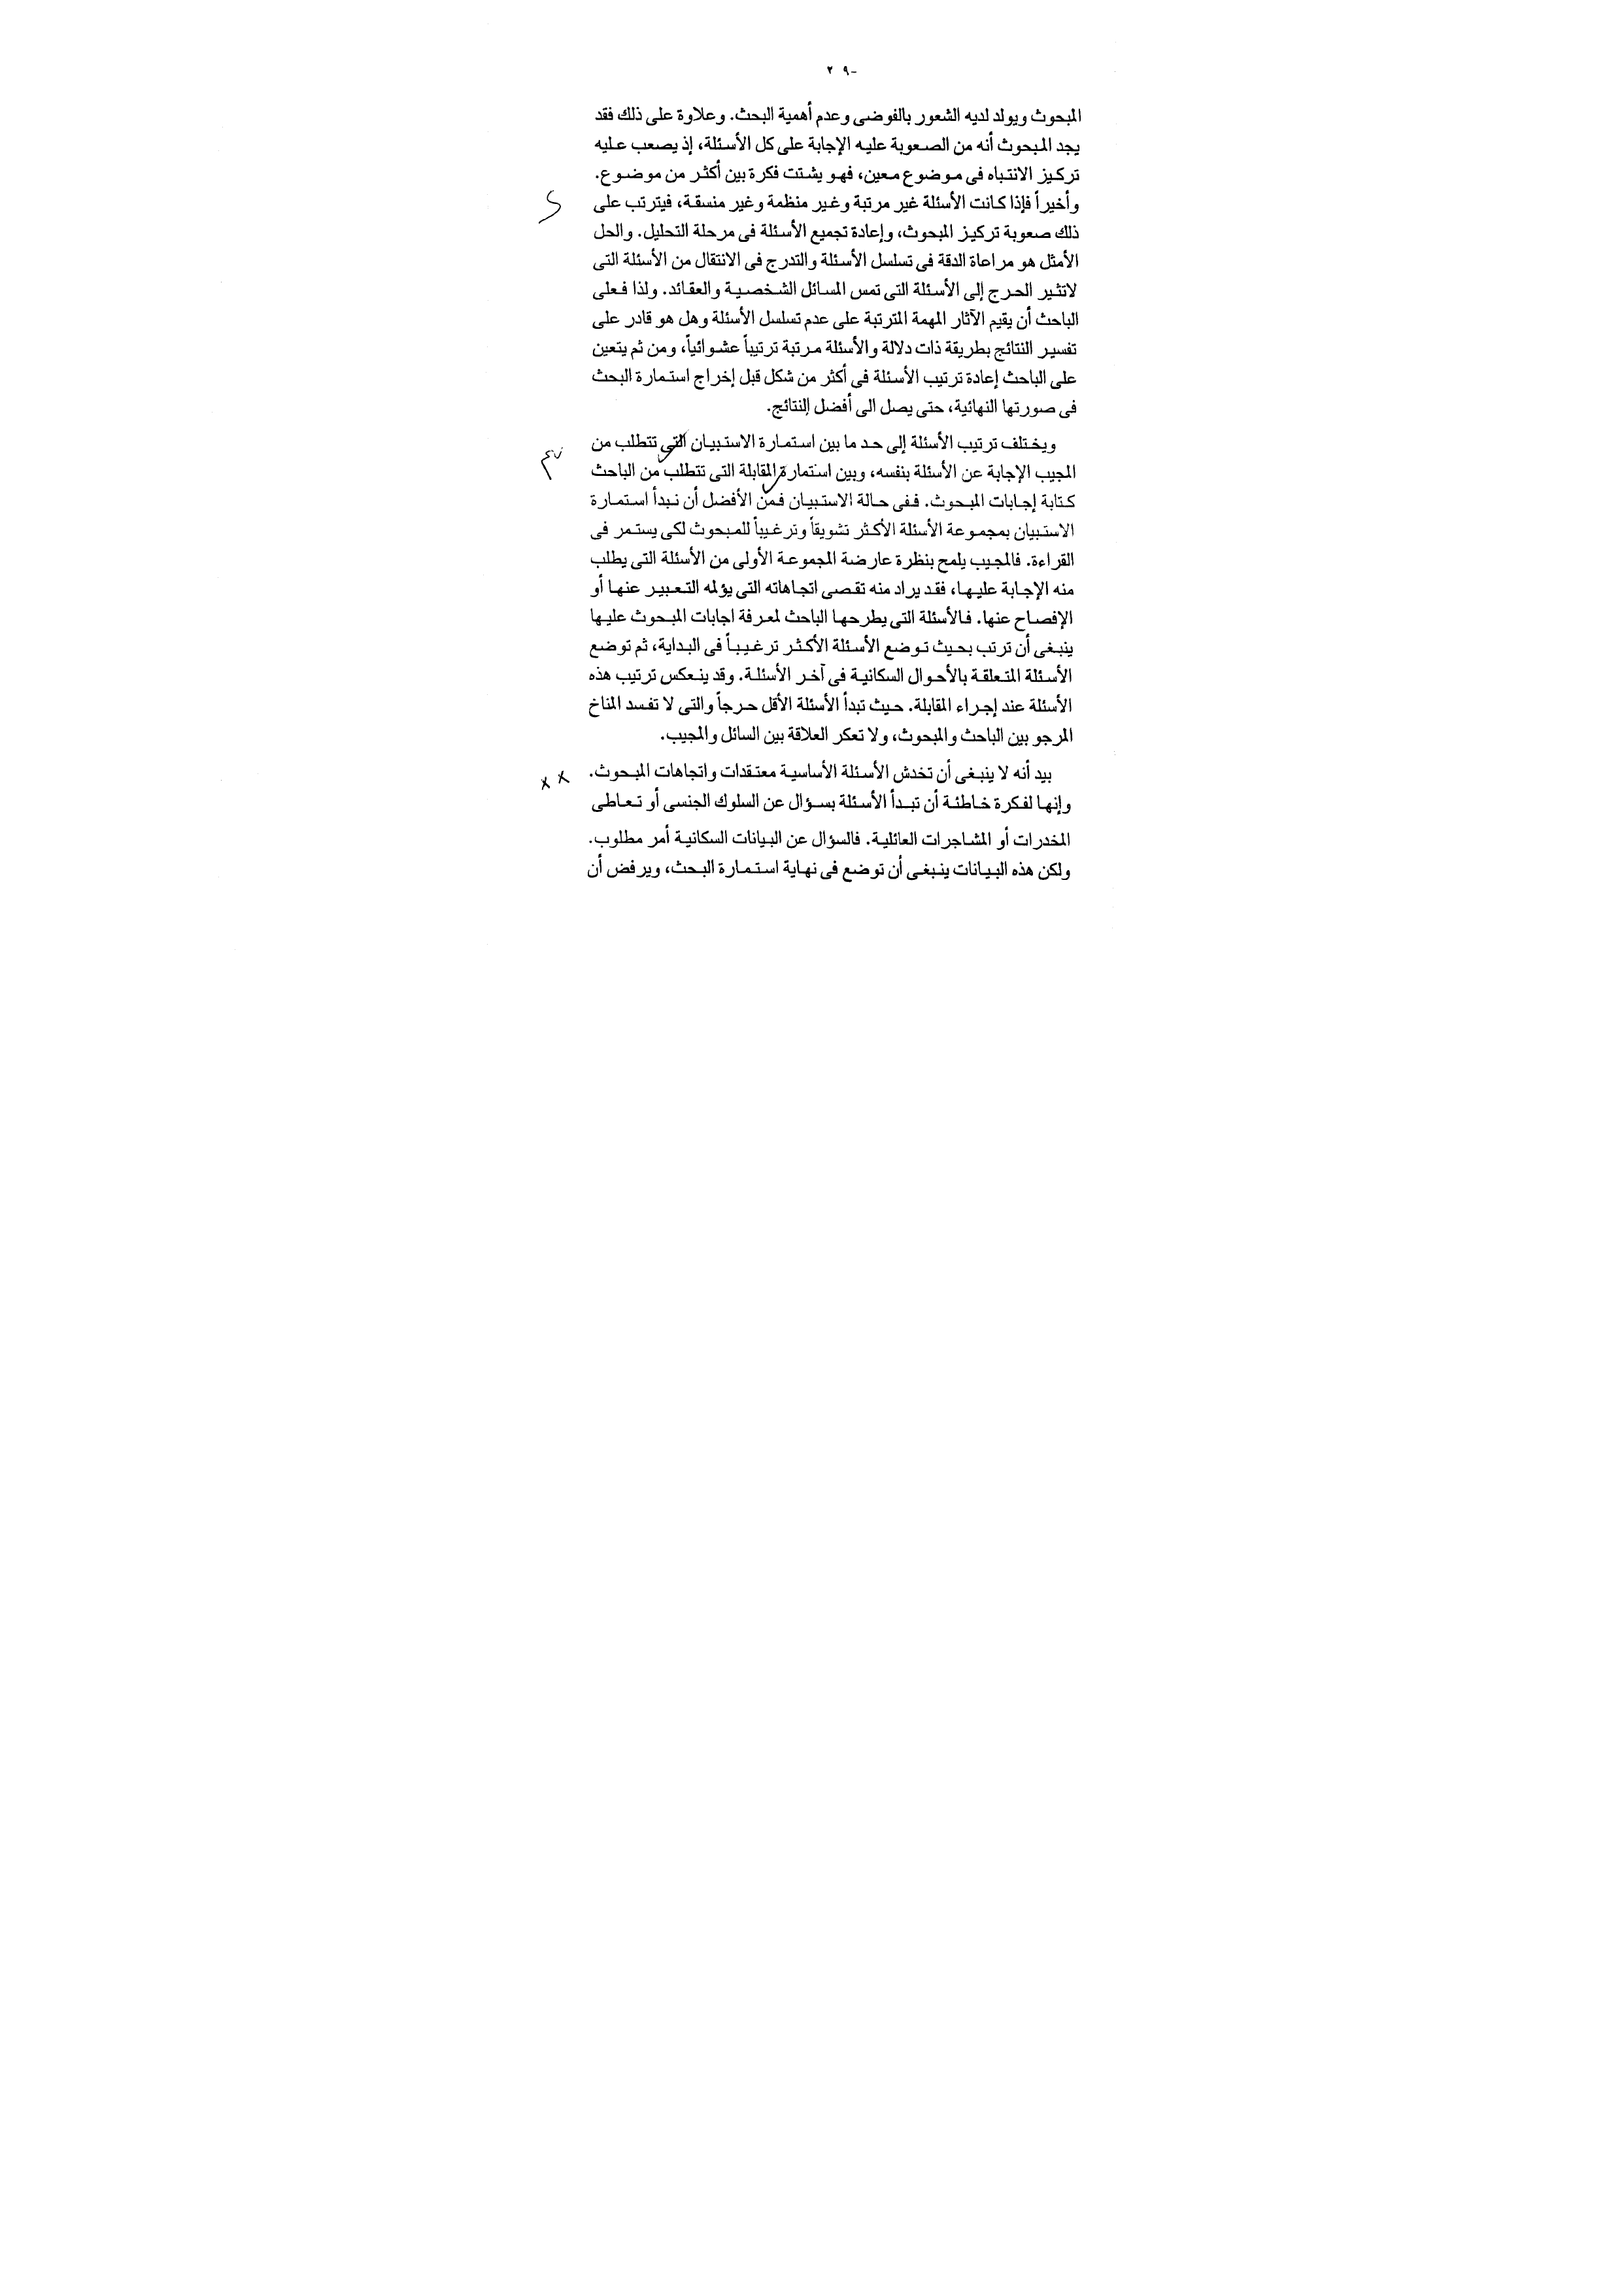 ٢ ٩-
المبحوث ويولد لديه الشعور بالفوضى وعدم أهمية البحث. وعلاوة على ذلك فقد
يجد المبحوث أنه من الصعوبة عليه الإجابة على كل الأسئلة، إذ يصعب عليه
تركيز الانتباه فى موضوع معين، فهو يشتت فكرة بين أكثر من موضوع.
وأخيراً فإذا كانت الأسئلة غير مرتبة وغير منظمة وغير منسقة، فيترتب على
ذلك صعوبة تركيز المبحوث، وإعادة تجميع الأسئلة فى مرحلة التحليل. والحل
الأمثل هو مراعاة الدقة فى تسلسل الأسئلة والتدرج فى الانتقال من الأسئلة التى
لاتثير الحرج إلى الأسئلة التى تمس المسائل الشخصية والعقائد. ولذا فعلى
الباحث أن يقيم الآثار المهمة المترتبة على عدم تسلسل الأسئلة وهل هو قادر على
تفسير النتائج بطريقة ذات دلالة والأسئلة مرتبة ترتيباً عشوائياً، ومن ثم يتعين
على الباحث إعادة ترتيب الأسئلة فى أكثر من شكل قبل إخراج استمارة البحث
فى صورتها النهائية، حتى يصل الى أفضل النتائج.
ويختلف ترتيب الأسئلة إلى حد ما بين استمارة الاستبيان التى تتطلب من
المجيب الإجابة عن الأسئلة بنفسه، وبين استمارة المقابلة التى تتطلب من الباحث
كتابة إجابات المبحوث. ففى حالة الاستبيان فمن الأفضل أن نبدأ استمارة
الاستبيان بمجموعة الأسئلة الأكثر تشويقاً وترغيباً للمبحوث لكى يستمر فى
القراءة. فالمجيب يلمح بنظرة عارضة المجموعة الأولى من الأسئلة التى يطلب
منه الإجابة عليها، فقد يراد منه تقصى اتجاهاته التى يؤلمه التعبير عنها أو
الإفصاح عنها. فالأسئلة التى يطرحها الباحث لمعرفة اجابات المبحوث عليها
ينبغى أن ترتب بحيث توضع الأسئلة الأكثر ترغيباً فى البداية، ثم توضع
الأسئلة المتعلقة بالأحوال السكانية فى آخر الأسئلة. وقد ينعكس ترتيب هذه
الأسئلة عند إجراء المقابلة. حيث تبدأ الأسئلة الأقل حرجاً والتى لا تفسد المناخ
المرجو بين الباحث والمبحوث، ولا تعكر العلاقة بين السائل والمجيب.
بيد أنه لا ينبغى أن تخدش الأسئلة الأساسية معتقدات واتجاهات المبحوث.
وإنها لفكرة خاطئة أن تبدأ الأسئلة بسؤال عن السلوك الجنسى أو تعاطى
المخدرات أو المشاجرات العائلية. فالسؤال عن البيانات السكانية أمر مطلوب.
ولكن هذه البيانات ينبغى أن توضع فى نهاية استمارة البحث، ويرفض أن